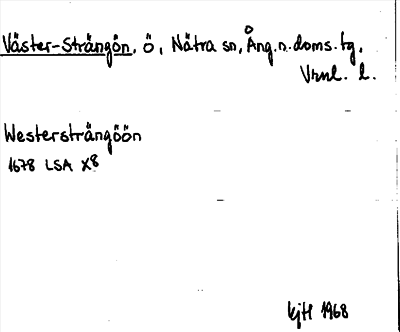 Väster-Strängön, ö, Nätra sn, Ång.n.doms.tg,
Vrnl. l.
Westersträngöön
1678 LSA X8
kjH 1968